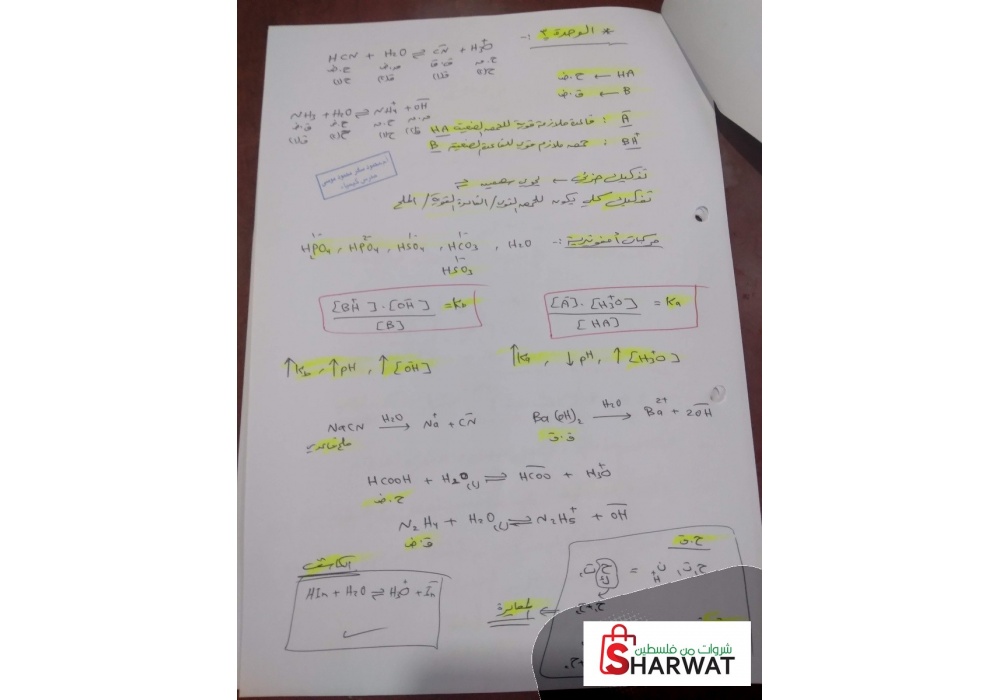 * الوحدة ٣ :-
HCN + H2O ⇌ CN⁻ + H3O⁺
ح.ض
HA ← ح.ض
B ← ق.ض
NH3 + H2O ⇌ NH4⁺ + OH⁻
A⁻ : قاعدة ملازمة قوية للحمض الضعيف HA
BH⁺ : حمض ملازم قوي للقاعدة الضعيفة B
تفكك جزئي ← يكون سهمين ⇌
تفكك كلي يكون للحمض القوي / القاعدة القوية / الملح
مركبات أمفوتيرية :- H2O , HCO3¹⁻ , HSO4¹⁻ , HPO4²⁻ , H2PO4¹⁻
HSO3¹⁻
Ka = [A⁻].[H3O⁺] / [HA]
Kb = [BH⁺].[OH⁻] / [B]
↑Ka , ↓pH , ↑[H3O⁺]
↑Kb , ↑pH , ↑[OH⁻]
Ba(OH)2 H2O → Ba²⁺ + 2OH⁻
ق.ق
NaCN H2O → Na⁺ + CN⁻
ملح قاعدي
HCOOH + H2O(l) ⇌ HCOO⁻ + H3O⁺
ح.ض
N2H4 + H2O(l) ⇌ N2H5⁺ + OH⁻
ق.ض
ح.ق
الكاشف
HIn + H2O ⇌ H3O⁺ + In⁻
المعايرة
شروات من فلسطين
SHARWAT